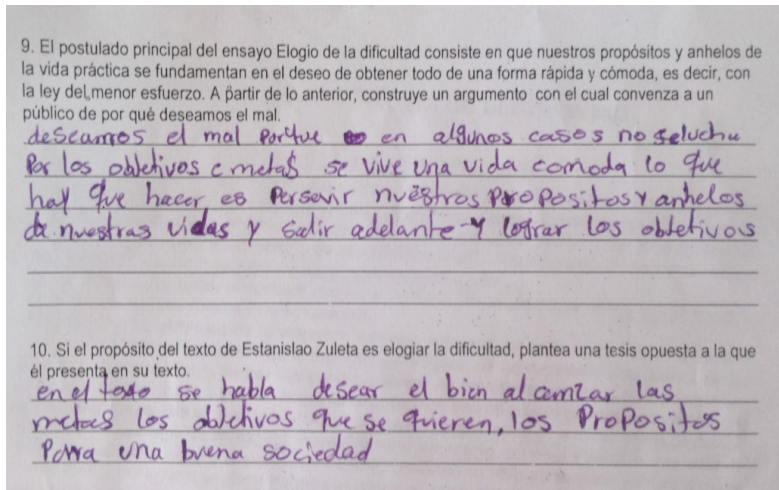 9. El postulado principal del ensayo Elogio de la dificultad consiste en que nuestros propósitos y anhelos de
la vida práctica se fundamentan en el deseo de obtener todo de una forma rápida y cómoda, es decir, con
la ley del menor esfuerzo. A partir de lo anterior, construye un argumento con el cual convenza a un
público de por qué deseamos el mal.
deseamos el mal porque en algunos casos no se lucha
Por los obletivos c metas se vive una vida comoda lo que
hay que hacer es Persevir nuestros Propositos y anhelos
de nuestras vidas y salir adelante y lograr los obletivos
10. Si el propósito del texto de Estanislao Zuleta es elogiar la dificultad, plantea una tesis opuesta a la que
él presenta en su texto.
en el texto se habla desear el bien alcanzar las
metas los obletivos que se quieren, los Propositos
Para una buena sociedad